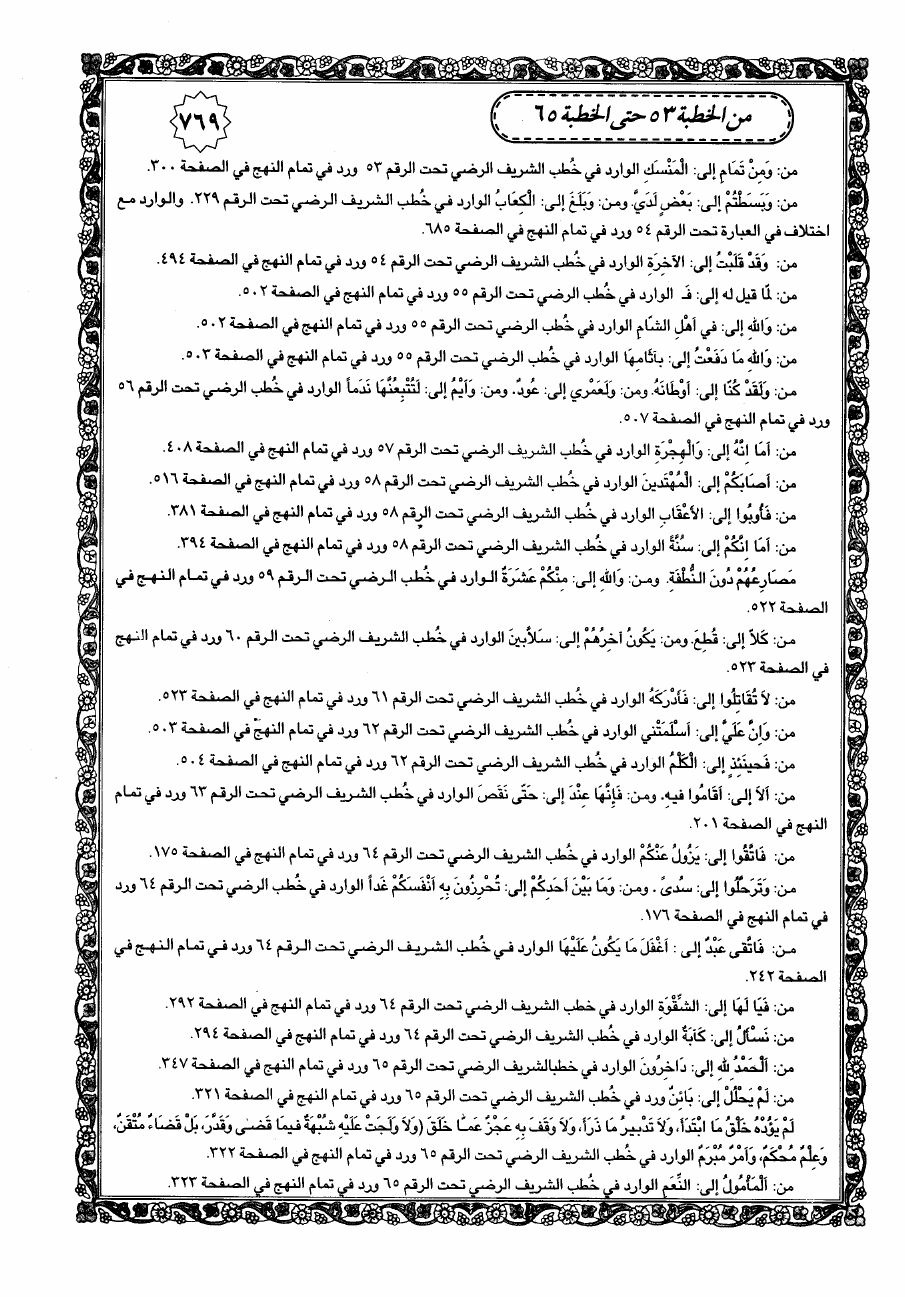 من الخطبة ٥٣ حتى الخطبة ٦٥
٧٦٩
من: وَمِنْ تَمَامِ إلى: الْمَنْسَكِ الوارد في خُطب الشريف الرضي تحت الرقم ٥٣ ورد في تمام النهج في الصفحة ٣٠٠.
من: وَبَسَطْتُمْ إلى: بَعْضٍ لَدَيَّ. ومن: وَبَلَغَ إلى: الْكِعَابُ الوارد في خُطب الشريف الرضي تحت الرقم ٢٢٩. والوارد مع
اختلاف في العبارة تحت الرقم ٥٤ ورد في تمام النهج في الصفحة ٦٨٥.
من: وَقَدْ قَلَبْتُ إلى: الآخِرَةِ الوارد في خُطب الشريف الرضي تحت الرقم ٥٤ ورد في تمام النهج في الصفحة ٤٩٤.
من: لمّا قيل له إلى: فَـ الوارد في خُطب الرضي تحت الرقم ٥٥ ورد في تمام النهج في الصفحة ٥٠٢.
من: وَاللهِ إلى: في أَهْلِ الشّامِ الوارد في خُطب الرضي تحت الرقم ٥٥ ورد في تمام النهج في الصفحة ٥٠٢.
من: وَاللهِ مَا دَفَعْتُ إلى: بآثَامِهَا الوارد في خُطب الرضي تحت الرقم ٥٥ ورد في تمام النهج في الصفحة ٥٠٣.
من: وَلَقَدْ كُنّا إلى: أَوْطَانَهُ. ومن: وَلَعَمْري إلى: عُودٌ. ومن: وَأَيْمُ إلى: لَتُتْبِعُنَّهَا نَدَماً الوارد في خُطب الرضي تحت الرقم ٥٦
ورد في تمام النهج في الصفحة ٥٠٧.
من: أَمَا إِنَّهُ إلى: وَالْهِجْرَةِ الوارد في خُطب الشريف الرضي تحت الرقم ٥٧ ورد في تمام النهج في الصفحة ٤٠٨.
من: أَصَابَكُمْ إلى: الْمُهْتَدينَ الوارد في خُطب الشريف الرضي تحت الرقم ٥٨ ورد في تمام النهج في الصفحة ٥١٦.
من: فَأُوبُوا إلى: الأَعْقَابِ الوارد في خُطب الشريف الرضي تحت الرقم ٥٨ ورد في تمام النهج في الصفحة ٣٨١.
من: أَمَا إِنَّكُمْ إلى: سُنَّةً الوارد في خُطب الشريف الرضي تحت الرقم ٥٨ ورد في تمام النهج في الصفحة ٣٩٤.
مَصَارِعُهُمْ دُونَ النُّطْفَةِ. ومن: وَاللهِ إلى: مِنْكُمْ عَشَرَةٌ الوارد في خُطب الرضي تحت الرقم ٥٩ ورد في تمام النهج في
الصفحة ٥٢٢.
من: كَلاَّ إلى: قُطِعَ. ومن: يَكُونُ آخِرُهُمْ إلى: سَلاَّبينَ الوارد في خُطب الشريف الرضي تحت الرقم ٦٠ ورد في تمام النهج
في الصفحة ٥٢٣.
من: لاَ تُقَاتِلُوا إلى: فَأَدْرَكَهُ الوارد في خُطب الشريف الرضي تحت الرقم ٦١ ورد في تمام النهج في الصفحة ٥٢٣.
من: وَإِنَّ عَلَيَّ إلى: أَسْلَمَتْني الوارد في خُطب الشريف الرضي تحت الرقم ٦٢ ورد في تمام النهج في الصفحة ٥٠٣.
من: فَحينَئِذٍ إلى: الْكَلْمُ الوارد في خُطب الشريف الرضي تحت الرقم ٦٢ ورد في تمام النهج في الصفحة ٥٠٤.
من: أَلاَ إلى: أَقَامُوا فيهِ. ومن: فَإِنَّهَا عِنْدَ إلى: حَتّى نَقَصَ الوارد في خُطب الشريف الرضي تحت الرقم ٦٣ ورد في تمام
النهج في الصفحة ٢٠١.
من: فَاتَّقُوا إلى: يَزُولُ عَنْكُمْ الوارد في خُطب الشريف الرضي تحت الرقم ٦٤ ورد في تمام النهج في الصفحة ١٧٥.
من: وَتَرَحَّلُوا إلى: سُدىً. ومن: وَمَا بَيْنَ أَحَدِكُمْ إلى: تُحْرِزُونَ بِهِ أَنْفُسَكُمْ غَداً الوارد في خُطب الرضي تحت الرقم ٦٤ ورد
في تمام النهج في الصفحة ١٧٦.
من: فَاتَّقى عَبْدٌ إلى: أَغْفَلَ مَا يَكُونُ عَلَيْهَا الوارد في خُطب الشريف الرضي تحت الرقم ٦٤ ورد في تمام النهج في
الصفحة ٢٤٢.
من: فَيَا لَهَا إلى: الشِّقْوَةِ الوارد في خطب الشريف الرضي تحت الرقم ٦٤ ورد في تمام النهج في الصفحة ٢٩٢.
من: نَسْأَلُ إلى: كَآبَةٌ الوارد في خُطب الشريف الرضي تحت الرقم ٦٤ ورد في تمام النهج في الصفحة ٢٩٤.
من: اَلْحَمْدُ للهِ إلى: دَاخِرُونَ الوارد في خطبالشريف الرضي تحت الرقم ٦٥ ورد في تمام النهج في الصفحة ٣٤٧.
من: لَمْ يَحْلُلْ إلى: بَائِنٌ ورد في خُطب الشريف الرضي تحت الرقم ٦٥ ورد في تمام النهج في الصفحة ٣٢١.
لَمْ يَؤُدْهُ خَلْقُ مَا ابْتَدَأَ، وَلاَ تَدْبيرُ مَا ذَرَأَ، وَلاَ وَقَفَ بِهِ عَجْزٌ عَمَّا خَلَقَ (وَلاَ وَلَجَتْ عَلَيْهِ شُبْهَةٌ فيمَا قَضى وَقَدَّرَ، بَلْ قَضَاءٌ مُتْقَنٌ،
وَعِلْمٌ مُحْكَمٌ، وَأَمْرٌ مُبْرَمٌ الوارد في خُطب الشريف الرضي تحت الرقم ٦٥ ورد في تمام النهج في الصفحة ٣٢٢.
من: اَلْمَأْمُولُ إلى: النِّعَمِ الوارد في خُطب الشريف الرضي تحت الرقم ٦٥ ورد في تمام النهج في الصفحة ٣٢٣.